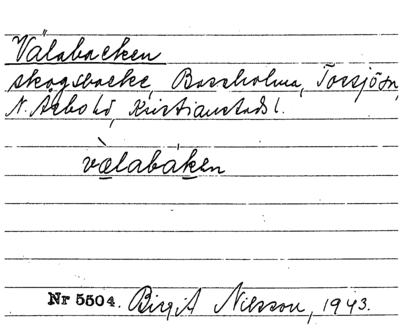 Välabacken
skogsbacke, Bossholma, Torsjösn,
N. Åsbo hd, Kristianstads l.
vælabáken
Nr 5504. Birgit Nilsson, 1943.